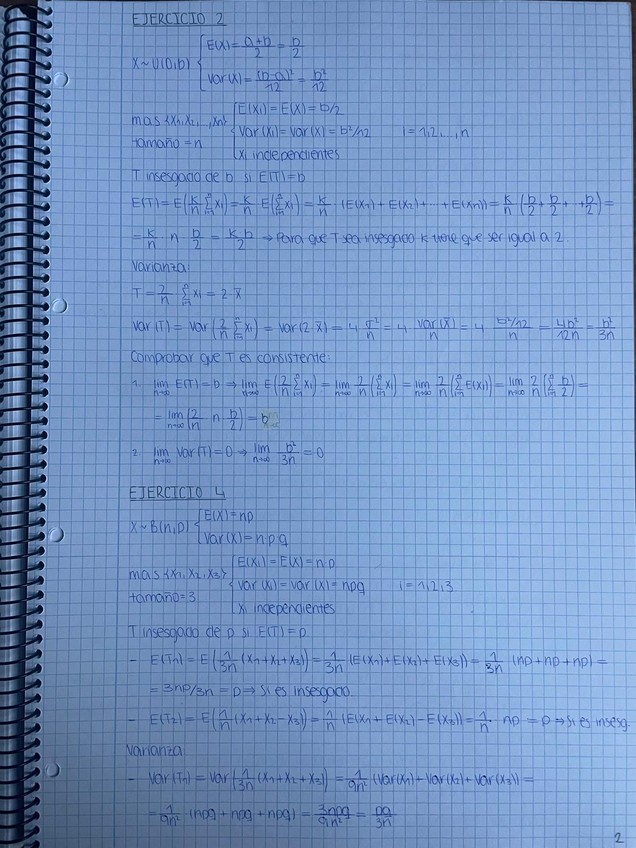 EJERCICIO 2
X ~ U(0,b) { E(X) = (a+b)/2 = b/2
Var(X) = (b-a)²/12 = b²/12
mas {X₁, X₂, ..., Xn} { E(Xi) = E(X) = b/2
tamaño = n { Var(Xi) = Var(X) = b²/12 i = 1,2,...,n
Xi independientes
T insesgado de b si E(T) = b
E(T) = E(k/n Σᵢ₌₁ⁿ Xi) = k/n E(Σᵢ₌₁ⁿ Xi) = k/n (E(X₁) + E(X₂) + ... + E(Xn)) = k/n (b/2 + b/2 + ... + b/2) =
= k/n n b/2 = k/2 b ⇒ Para que T sea insesgado k tiene que ser igual a 2.
Varianza:
T = 2/n Σᵢ₌₁ⁿ Xi = 2 x̄
Var(T) = Var(2/n Σᵢ₌₁ⁿ Xi) = Var(2 x̄) = 4 σ²/n = 4 Var(X)/n = 4 (b²/12)/n = 4b²/12n = b²/3n
Comprobar que T es consistente:
1. lim n→∞ E(T) = b ⇒ lim n→∞ E(2/n Σᵢ₌₁ⁿ Xi) = lim n→∞ 2/n (Σᵢ₌₁ⁿ Xi) = lim n→∞ 2/n (Σᵢ₌₁ⁿ E(Xi)) = lim n→∞ 2/n (Σᵢ₌₁ⁿ b/2) =
= lim n→∞ (2/n n b/2) = b
2. lim n→∞ Var(T) = 0 ⇒ lim n→∞ b²/3n = 0
EJERCICIO 4
X ~ B(n,p) { E(X) = np
Var(X) = n p q
mas {X₁, X₂, X₃} { E(Xi) = E(X) = n·p
tamaño = 3 { Var(Xi) = Var(X) = npq i = 1,2,3
Xi independientes
T insesgado de p si E(T) = p.
- E(T₁) = E(1/3n (X₁+X₂+X₃)) = 1/3n (E(X₁) + E(X₂) + E(X₃)) = 1/3n (np + np + np) =
= 3np/3n = p ⇒ Si es insesgado.
- E(T₂) = E(1/n (X₁+X₂-X₃)) = 1/n (E(X₁ + E(X₂) - E(X₃)) = 1/n · np = p ⇒ Si es insesg.
Varianza
- Var(T₁) = Var(1/3n (X₁+X₂+X₃)) = 1/9n² (Var(X₁) + Var(X₂) + Var(X₃)) =
= 1/9n² (npq + npq + npq) = 3npq/9n² = pq/3n
2